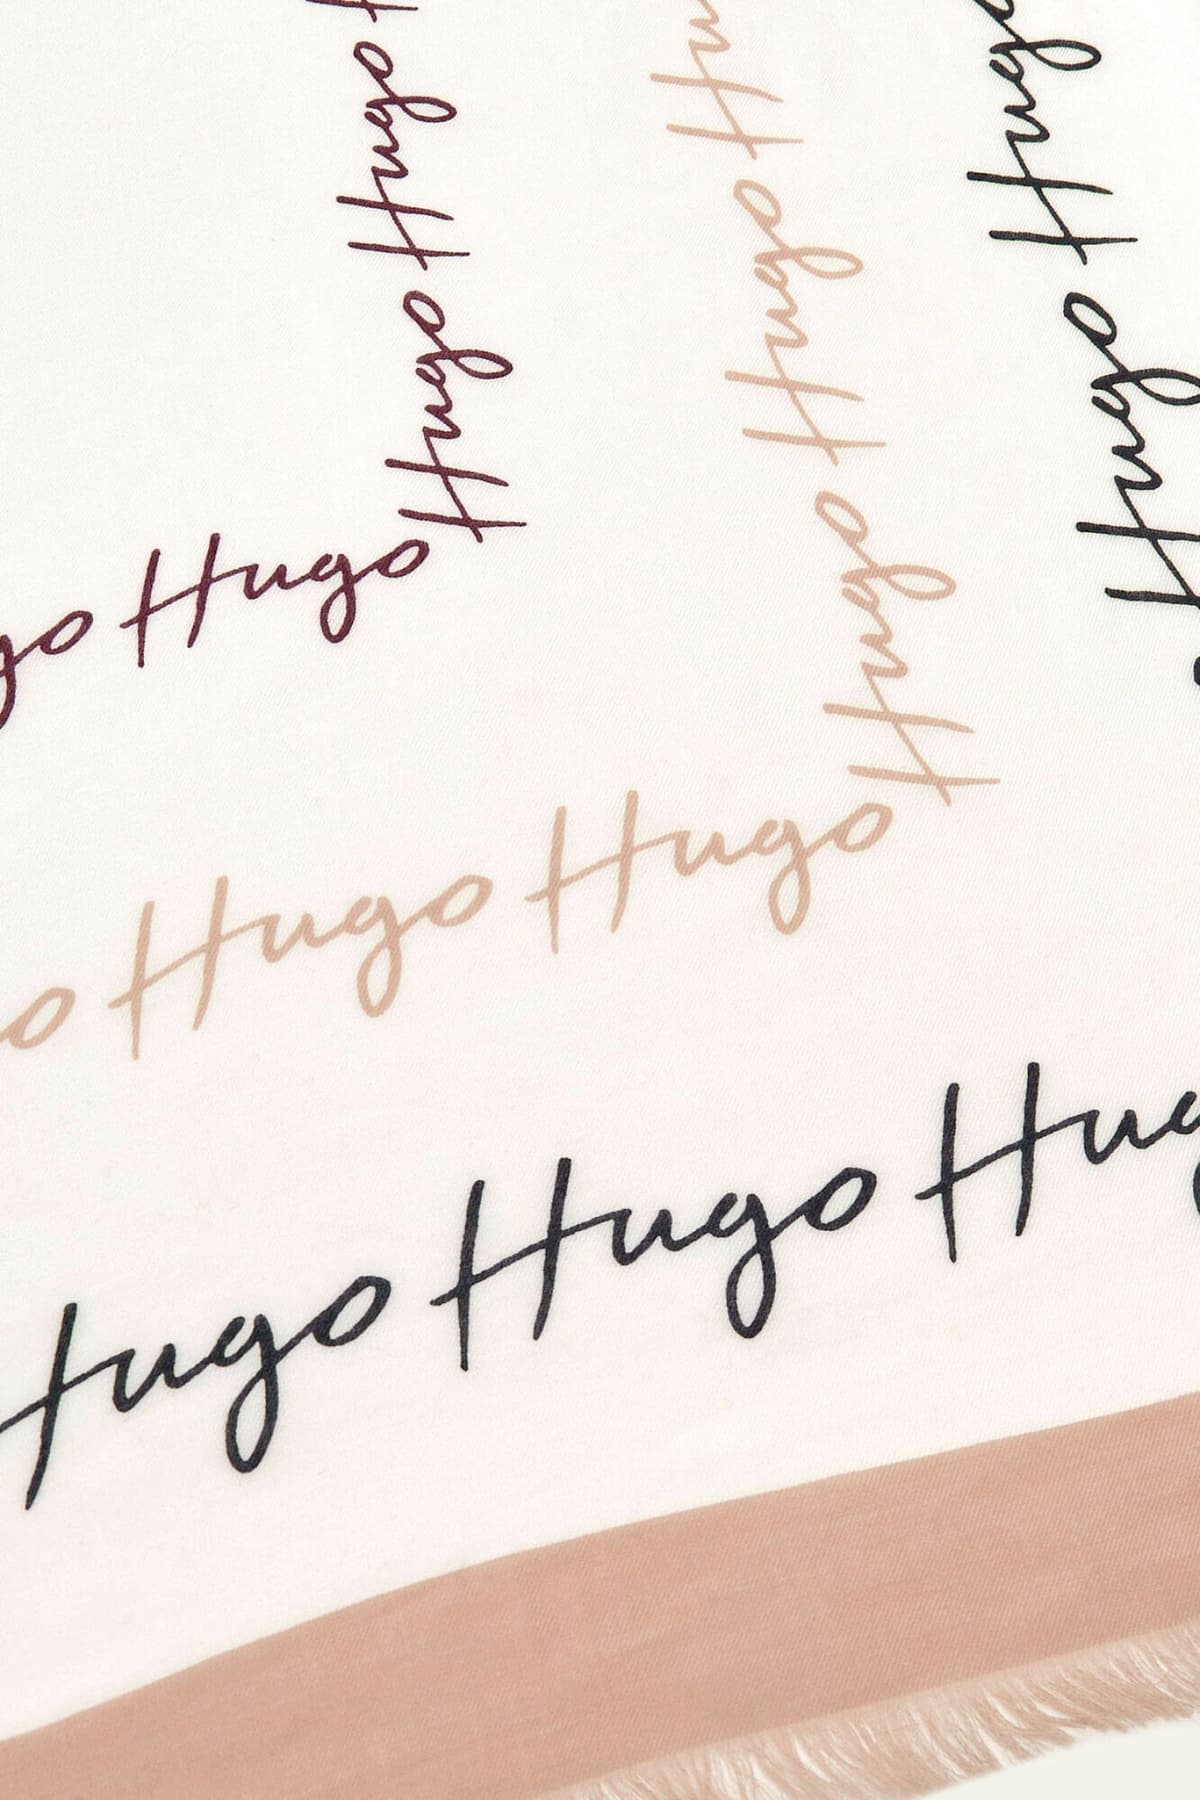 Hugo Hugo
Hugo Hugo Hugo
Hugo Hugo
go Hugo
o Hugo Hugo
Hugo Hugo Hug